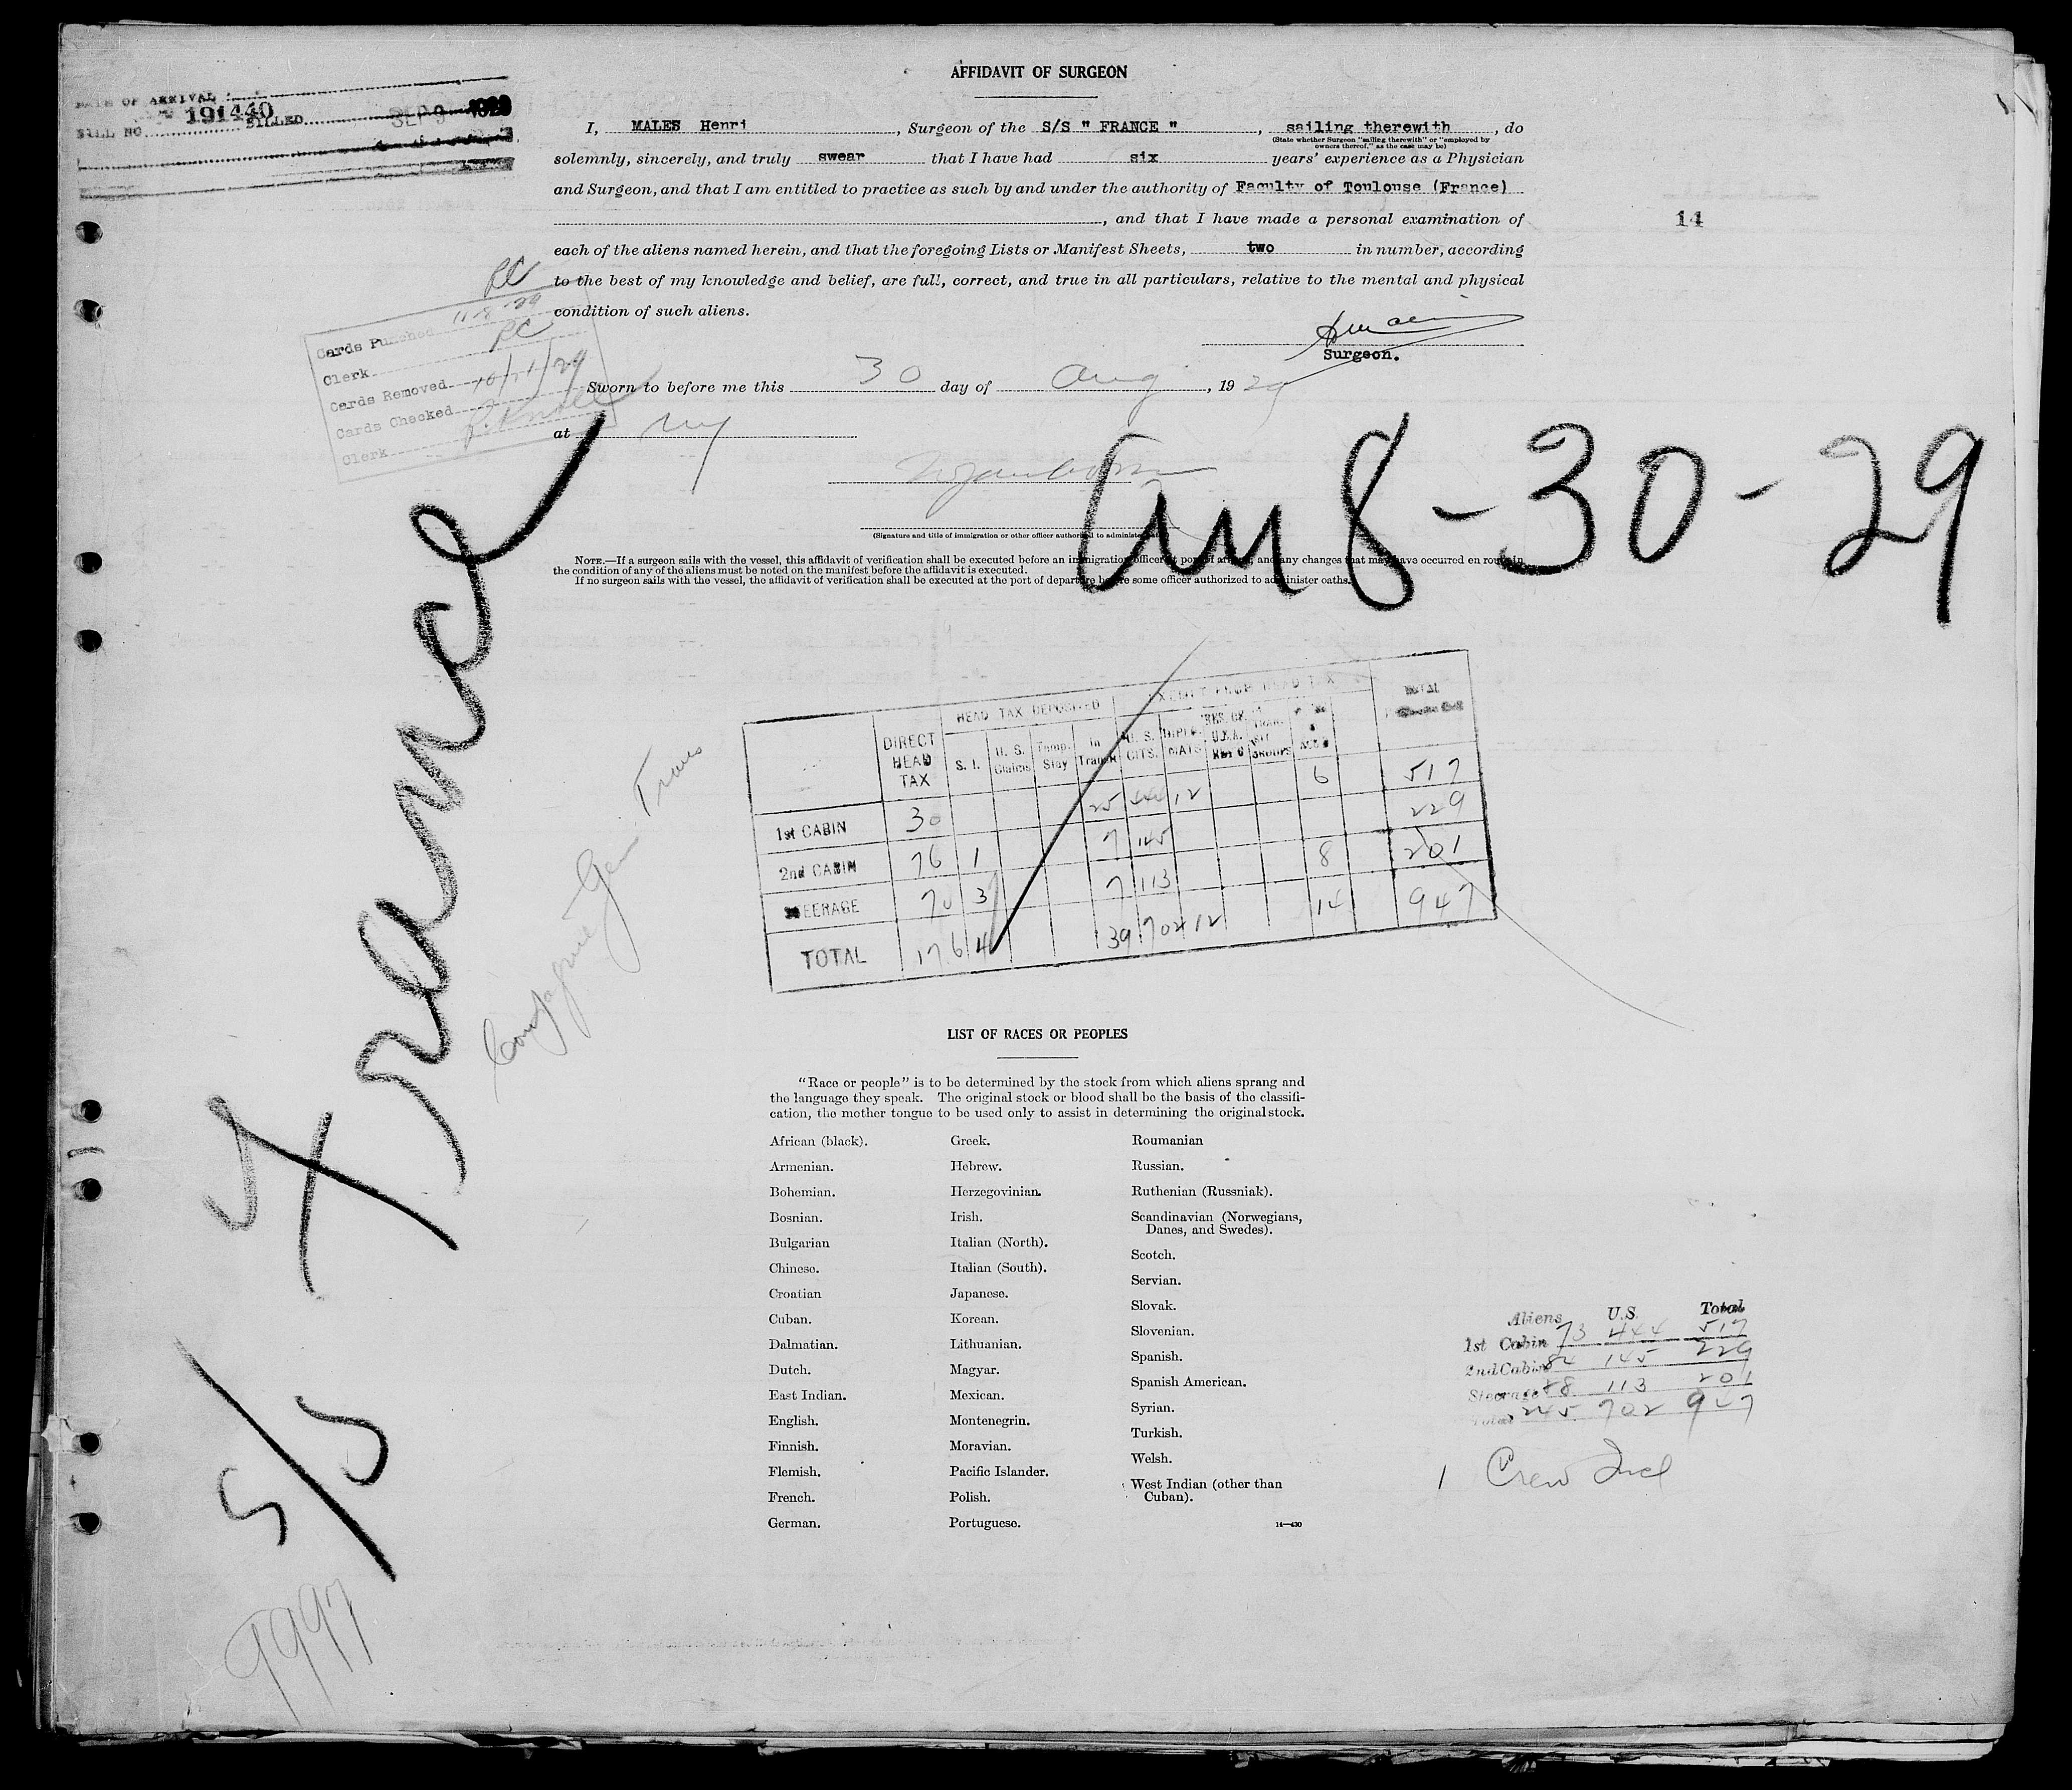 AFFIDAVIT OF SURGEON
DATE OF ARRIVAL
BILL NO 191440 BILLED SEP 9 1929
I, MALES Henri, Surgeon of the S/S " FRANCE ", sailing therewith, do
(State whether Surgeon "sailing therewith" or "employed by
owners thereof," as the case may be)
solemnly, sincerely, and truly swear that I have had six years' experience as a Physician
and Surgeon, and that I am entitled to practice as such by and under the authority of Faculty of Toulouse (France)
, and that I have made a personal examination of
14
each of the aliens named herein, and that the foregoing Lists or Manifest Sheets, two in number, according
to the best of my knowledge and belief, are full, correct, and true in all particulars, relative to the mental and physical
condition of such aliens.
Surgeon.
RC
Cards Punched 11-8-29
Clerk RC
Cards Removed 10/21/29
Cards Checked
Clerk
Sworn to before me this 30 day of Aug, 1929
at NY
8-30-29
(Signature and title of immigration or other officer authorized to administer
NOTE.—If a surgeon sails with the vessel, this affidavit of verification shall be executed before an immigration officer at port of arrival, and any changes that may have occurred en route in
the condition of any of the aliens must be noted on the manifest before the affidavit is executed.
If no surgeon sails with the vessel, the affidavit of verification shall be executed at the port of departure before some officer authorized to administer oaths.
S/S France
Compagnie Gen Trans
HEAD TAX DEPOSITED EXEMPT FROM HEAD TAX TOTAL
DIRECT HEAD TAX S. I. U. S. Claims Temp. Stay In Transit U. S. CITS. DIPLOMATS
1st CABIN 30 25 444 12 6 517
2nd CABIN 76 1 7 145 229
STEERAGE 70 3 7 113 8 201
TOTAL 176 4 39 702 12 14 947
LIST OF RACES OR PEOPLES
"Race or people" is to be determined by the stock from which aliens sprang and
the language they speak. The original stock or blood shall be the basis of the classifi-
cation, the mother tongue to be used only to assist in determining the original stock.
African (black).
Armenian.
Bohemian.
Bosnian.
Bulgarian
Chinese.
Croatian
Cuban.
Dalmatian.
Dutch.
East Indian.
English.
Finnish.
Flemish.
French.
German.
Greek.
Hebrew.
Herzegovinian.
Irish.
Italian (North).
Italian (South).
Japanese.
Korean.
Lithuanian.
Magyar.
Mexican.
Montenegrin.
Moravian.
Pacific Islander.
Polish.
Portuguese.
Roumanian
Russian.
Ruthenian (Russniak).
Scandinavian (Norwegians,
Danes, and Swedes).
Scotch.
Servian.
Slovak.
Slovenian.
Spanish.
Spanish American.
Syrian.
Turkish.
Welsh.
West Indian (other than
Cuban).
14—430
Aliens U.S. Total
1st Cabin 73 444 517
2nd Cabin 84 145 229
Steerage 88 113 201
Total 245 702 947
1 Crew Incl
9997